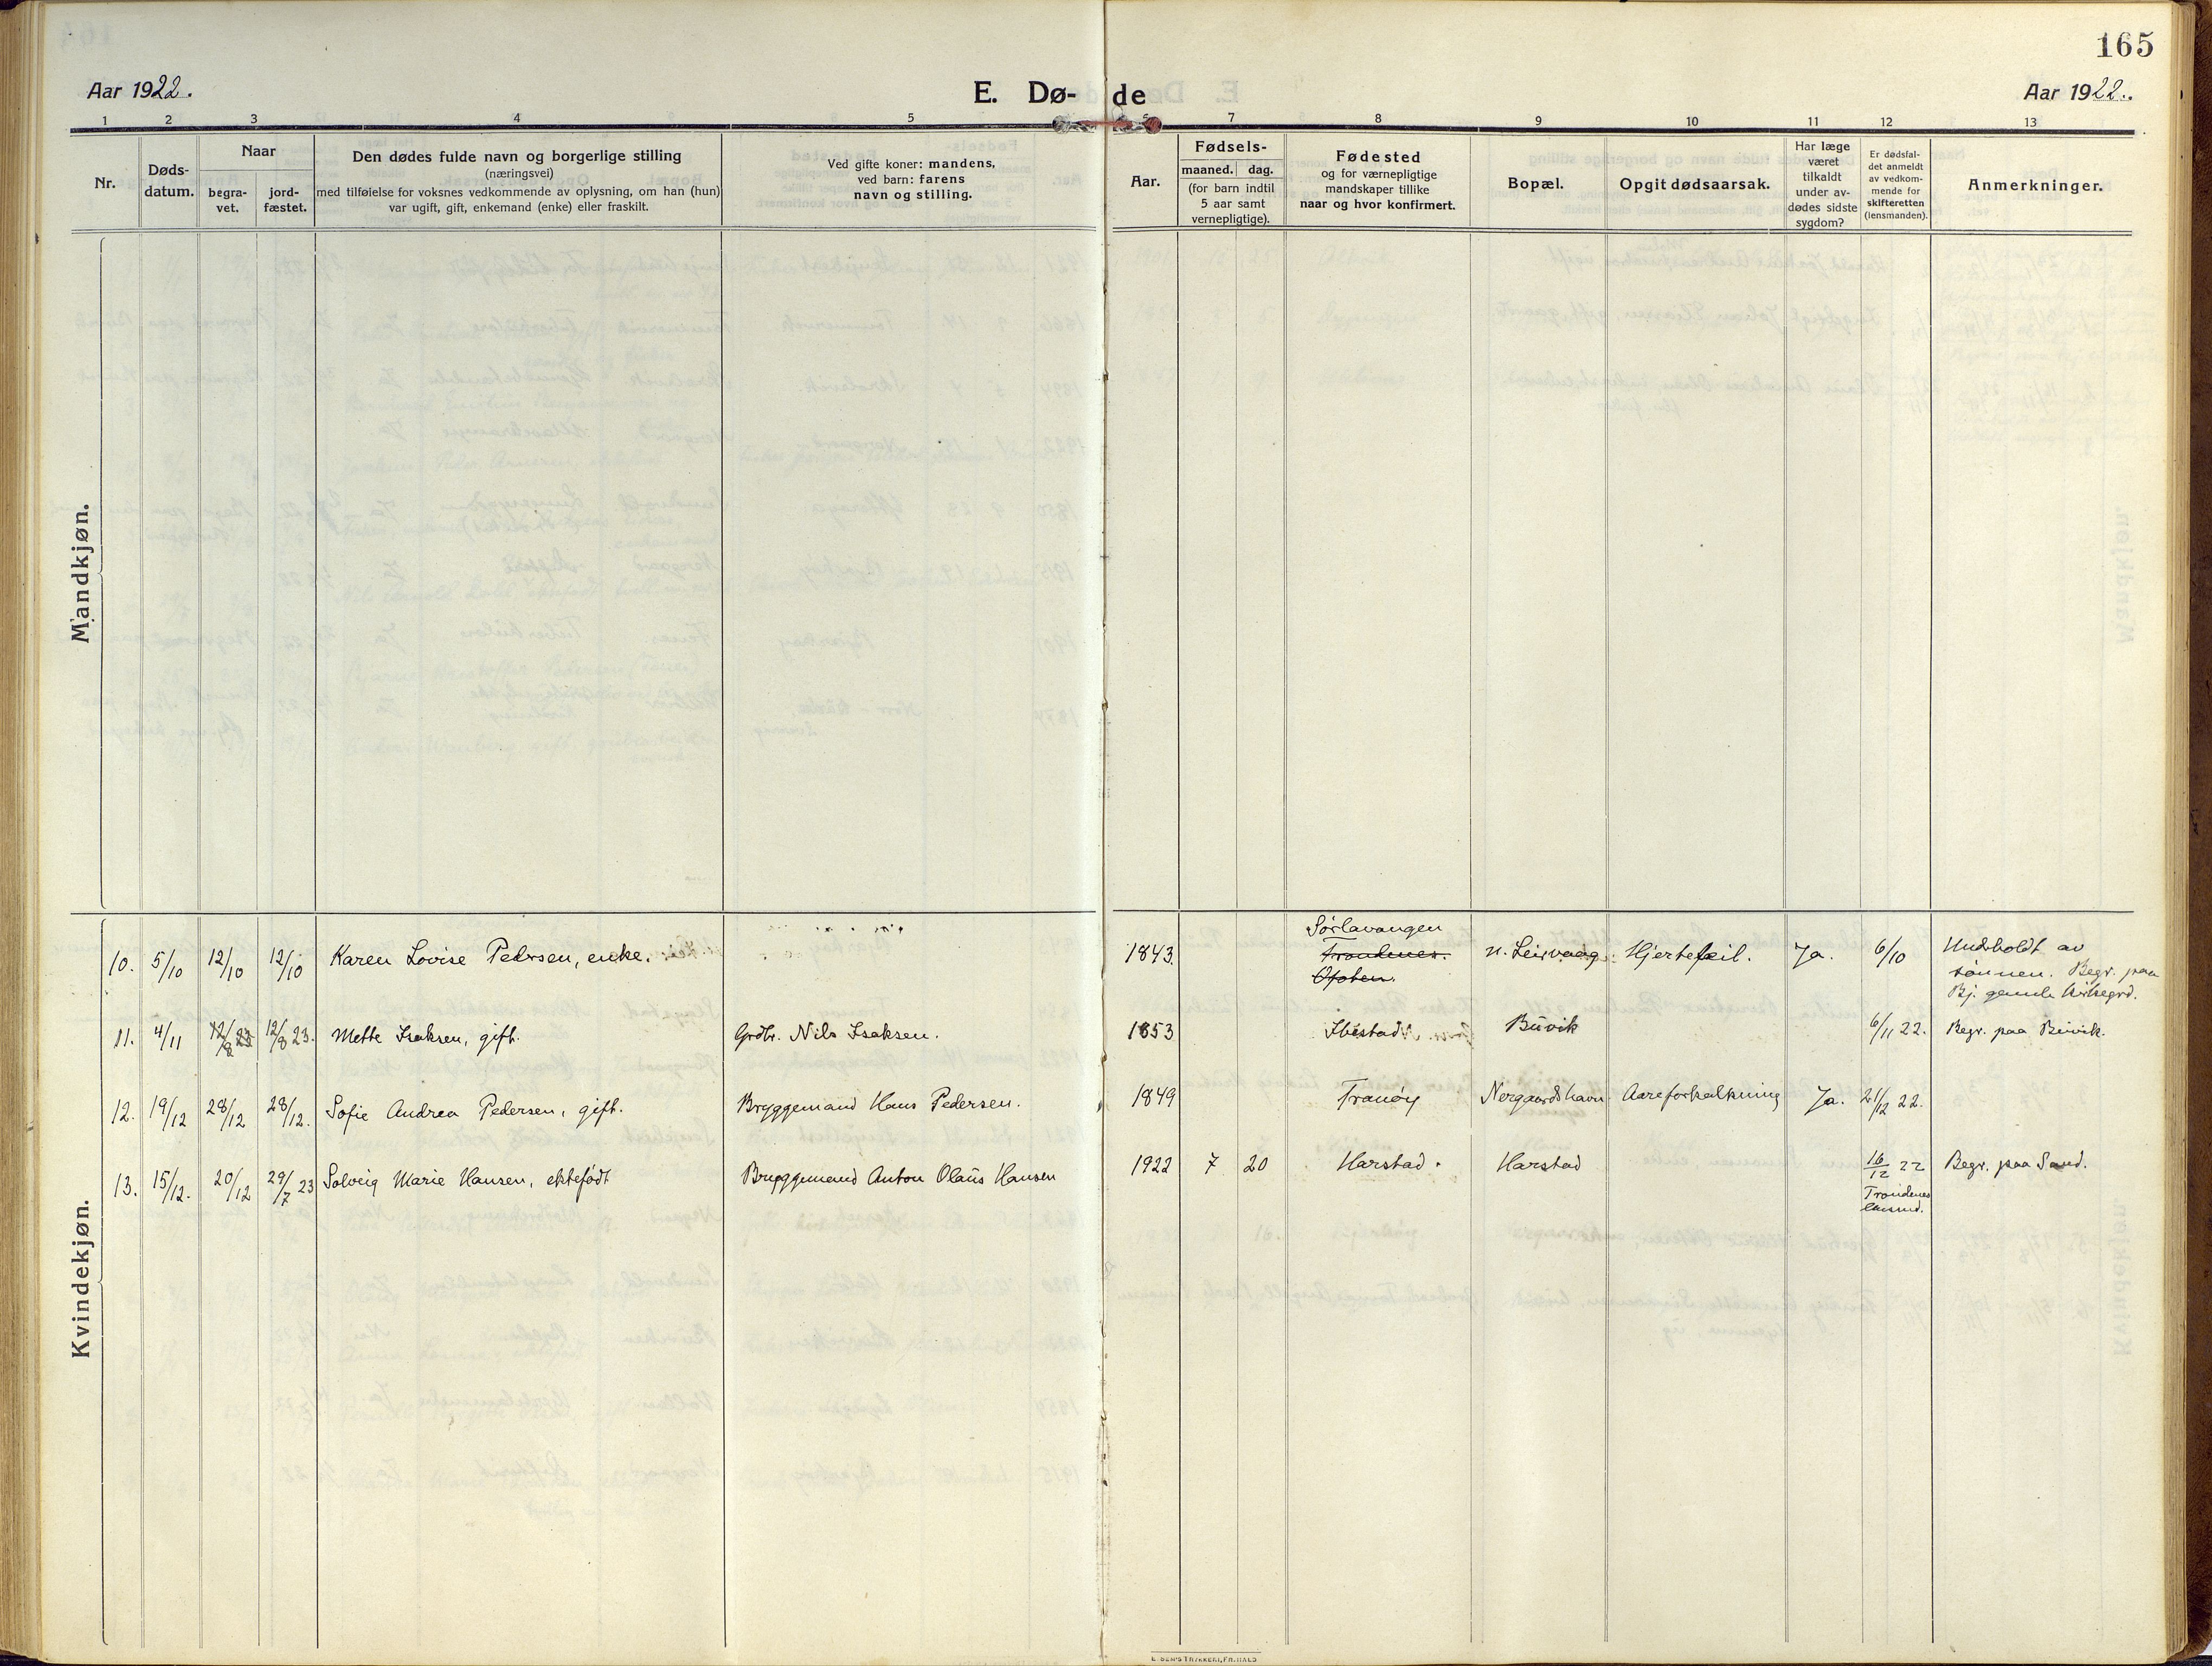 165
Aar 1922.
E. Dø- de
Aar 1922.
1 2 3 4 5 6 7 8 9 10 11 12 13
Nr.
Døds-
datum.
Naar
begra-
vet.
jord-
fæstet.
Den dødes fulde navn og borgerlige stilling
(næringsvei)
med tilføielse for voksnes vedkommende av oplysning, om han (hun)
var ugift, gift, enkemand (enke) eller fraskilt.
Ved gifte koner: mandens,
ved barn: farens
navn og stilling.
Aar.
Fødsels-
maaned. dag.
(for barn indtil
5 aar samt
vernepligtige).
Fødested
og for værnepligtige
mandskaper tillike
naar og hvor konfirmert.
Bopæl.
Opgit dødsaarsak.
Har læge
været
tilkaldt
under av-
dødes sidste
sygdom?
Er dødsfal-
det anmeldt
av vedkom-
mende for
skifteretten
(lensmanden).
Anmerkninger.
Mandkjøn.
Kvindekjøn.
Sørlavangen
10. 5/10 12/10 12/10 Karen Lovise Pedersen, enke. 1843. Trondenes. n. Leirvaag Hjertefeil. Ja. 6/10 Underholdt av
Ofoten. sønnen. Begr. paa
Bj. gamle kirkegrd.
11. 4/11 12/8 23 12/8 23. Mette Isaksen, gift. Grdbr. Nils Isaksen. 1853 Ibestad Buvik 6/11 22. Begr. paa Buvik.
12. 19/12 28/12 28/12. Sofie Andrea Pedersen, gift. Bryggemand Hans Pedersen. 1849 Tranøy Nergaardshavn Aareforkalkning Ja. 21/12 22.
13. 15/12. 20/12 29/7 23 Solveig Marie Hansen, ektefødt Bryggemand Anton Olaus Hansen 1922 7 20 Harstad. Harstad 16/12 22 Begr. paa Sand.
Trondenes
lensmd.